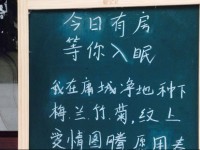 今日有房
等你入眠
我在庸城净地种下
梅.兰.竹.菊.纹上
爱情图腾.原用着